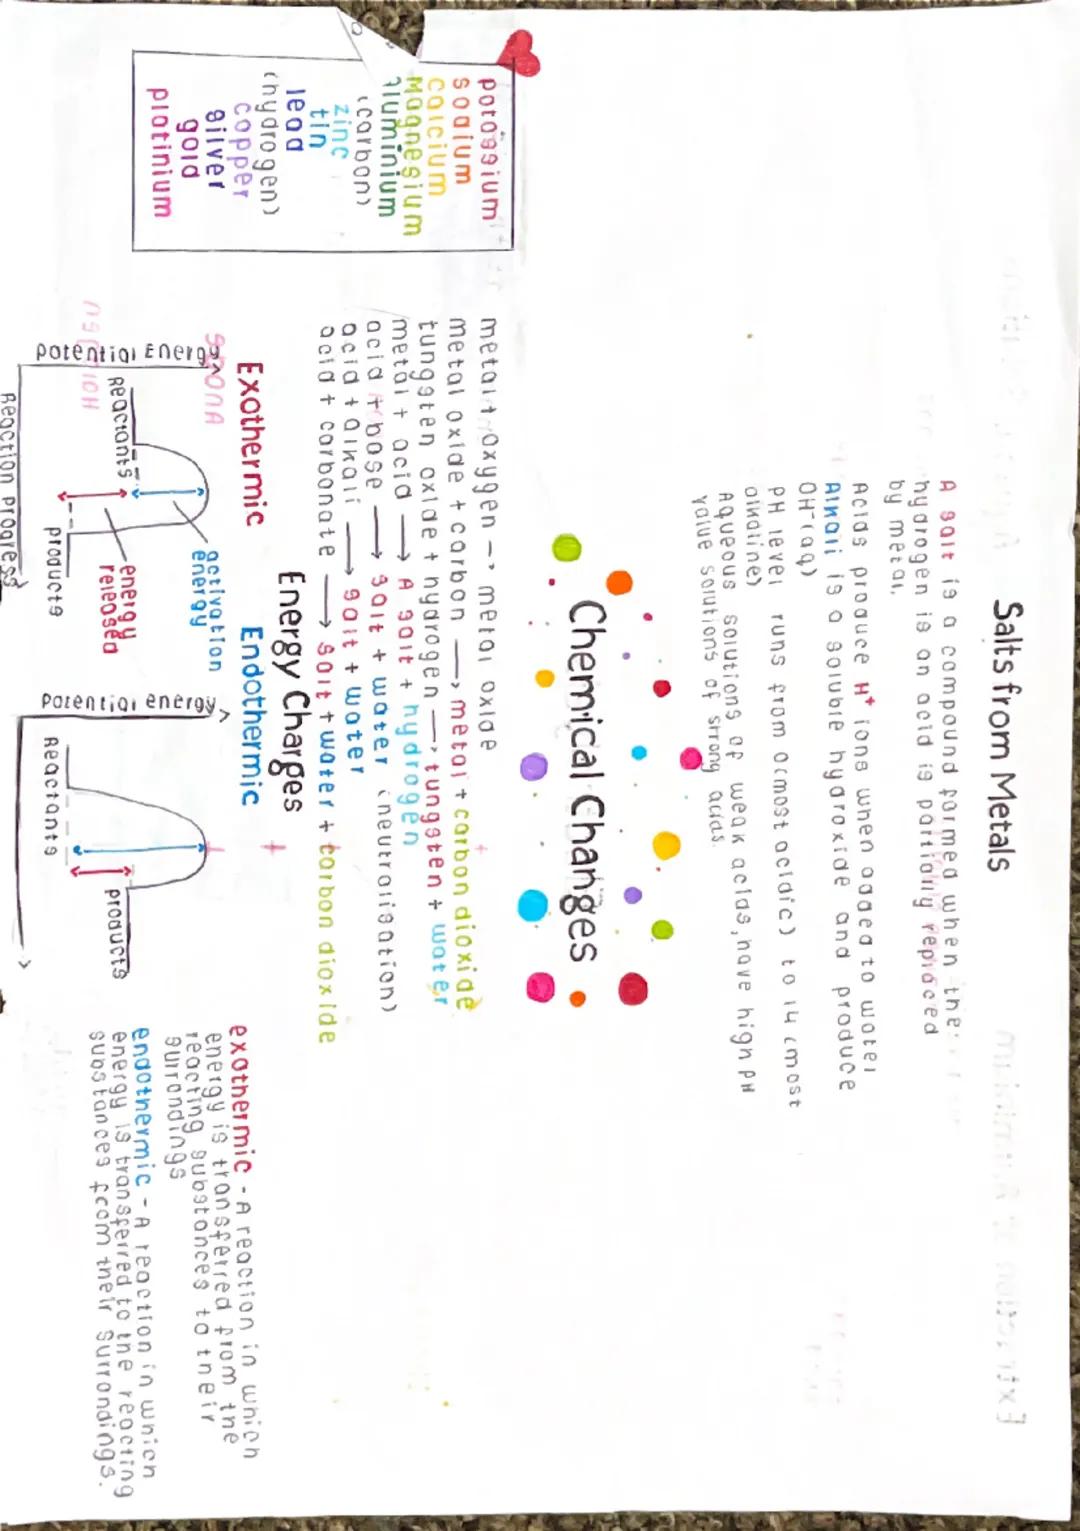 Salts from Metals
A salt is a compound formed when the
hydrogen is an acid is partially replaced
by metal.
Acids produce H⁺ ions when added to water
Alkali is a soluble hydroxide and produce
OH⁻(aq)
PH level runs from 0(most acidic) to 14 (most
alkaline)
Aqueous solutions of weak acids, have high PH
value solutions of strong acids.
Chemical Changes
potassium
sodium
calcium
Magnesium
aluminium
(carbon)
zinc
tin
lead
(hydrogen)
copper
silver
gold
platinium
metal + oxygen → metal oxide
metal oxide + carbon → metal + carbon dioxide
tungsten oxide + hydrogen → tungsten + water
metal + acid → A salt + hydrogen
acid + base → salt + water (neutralisation)
acid + alkali → salt + water
acid + carbonate → salt + water + carbon dioxide
Energy Charges
Exothermic
Endothermic
potential Energy
Reactants
activation
energy
energy
released
products
Reaction Progress
Potential energy
Reactants
products
exothermic - A reaction in which
energy is transferred from the
reacting substances to their
surrondings
endothermic - A reaction in which
energy is transferred to the reacting
substances from their surrondings.